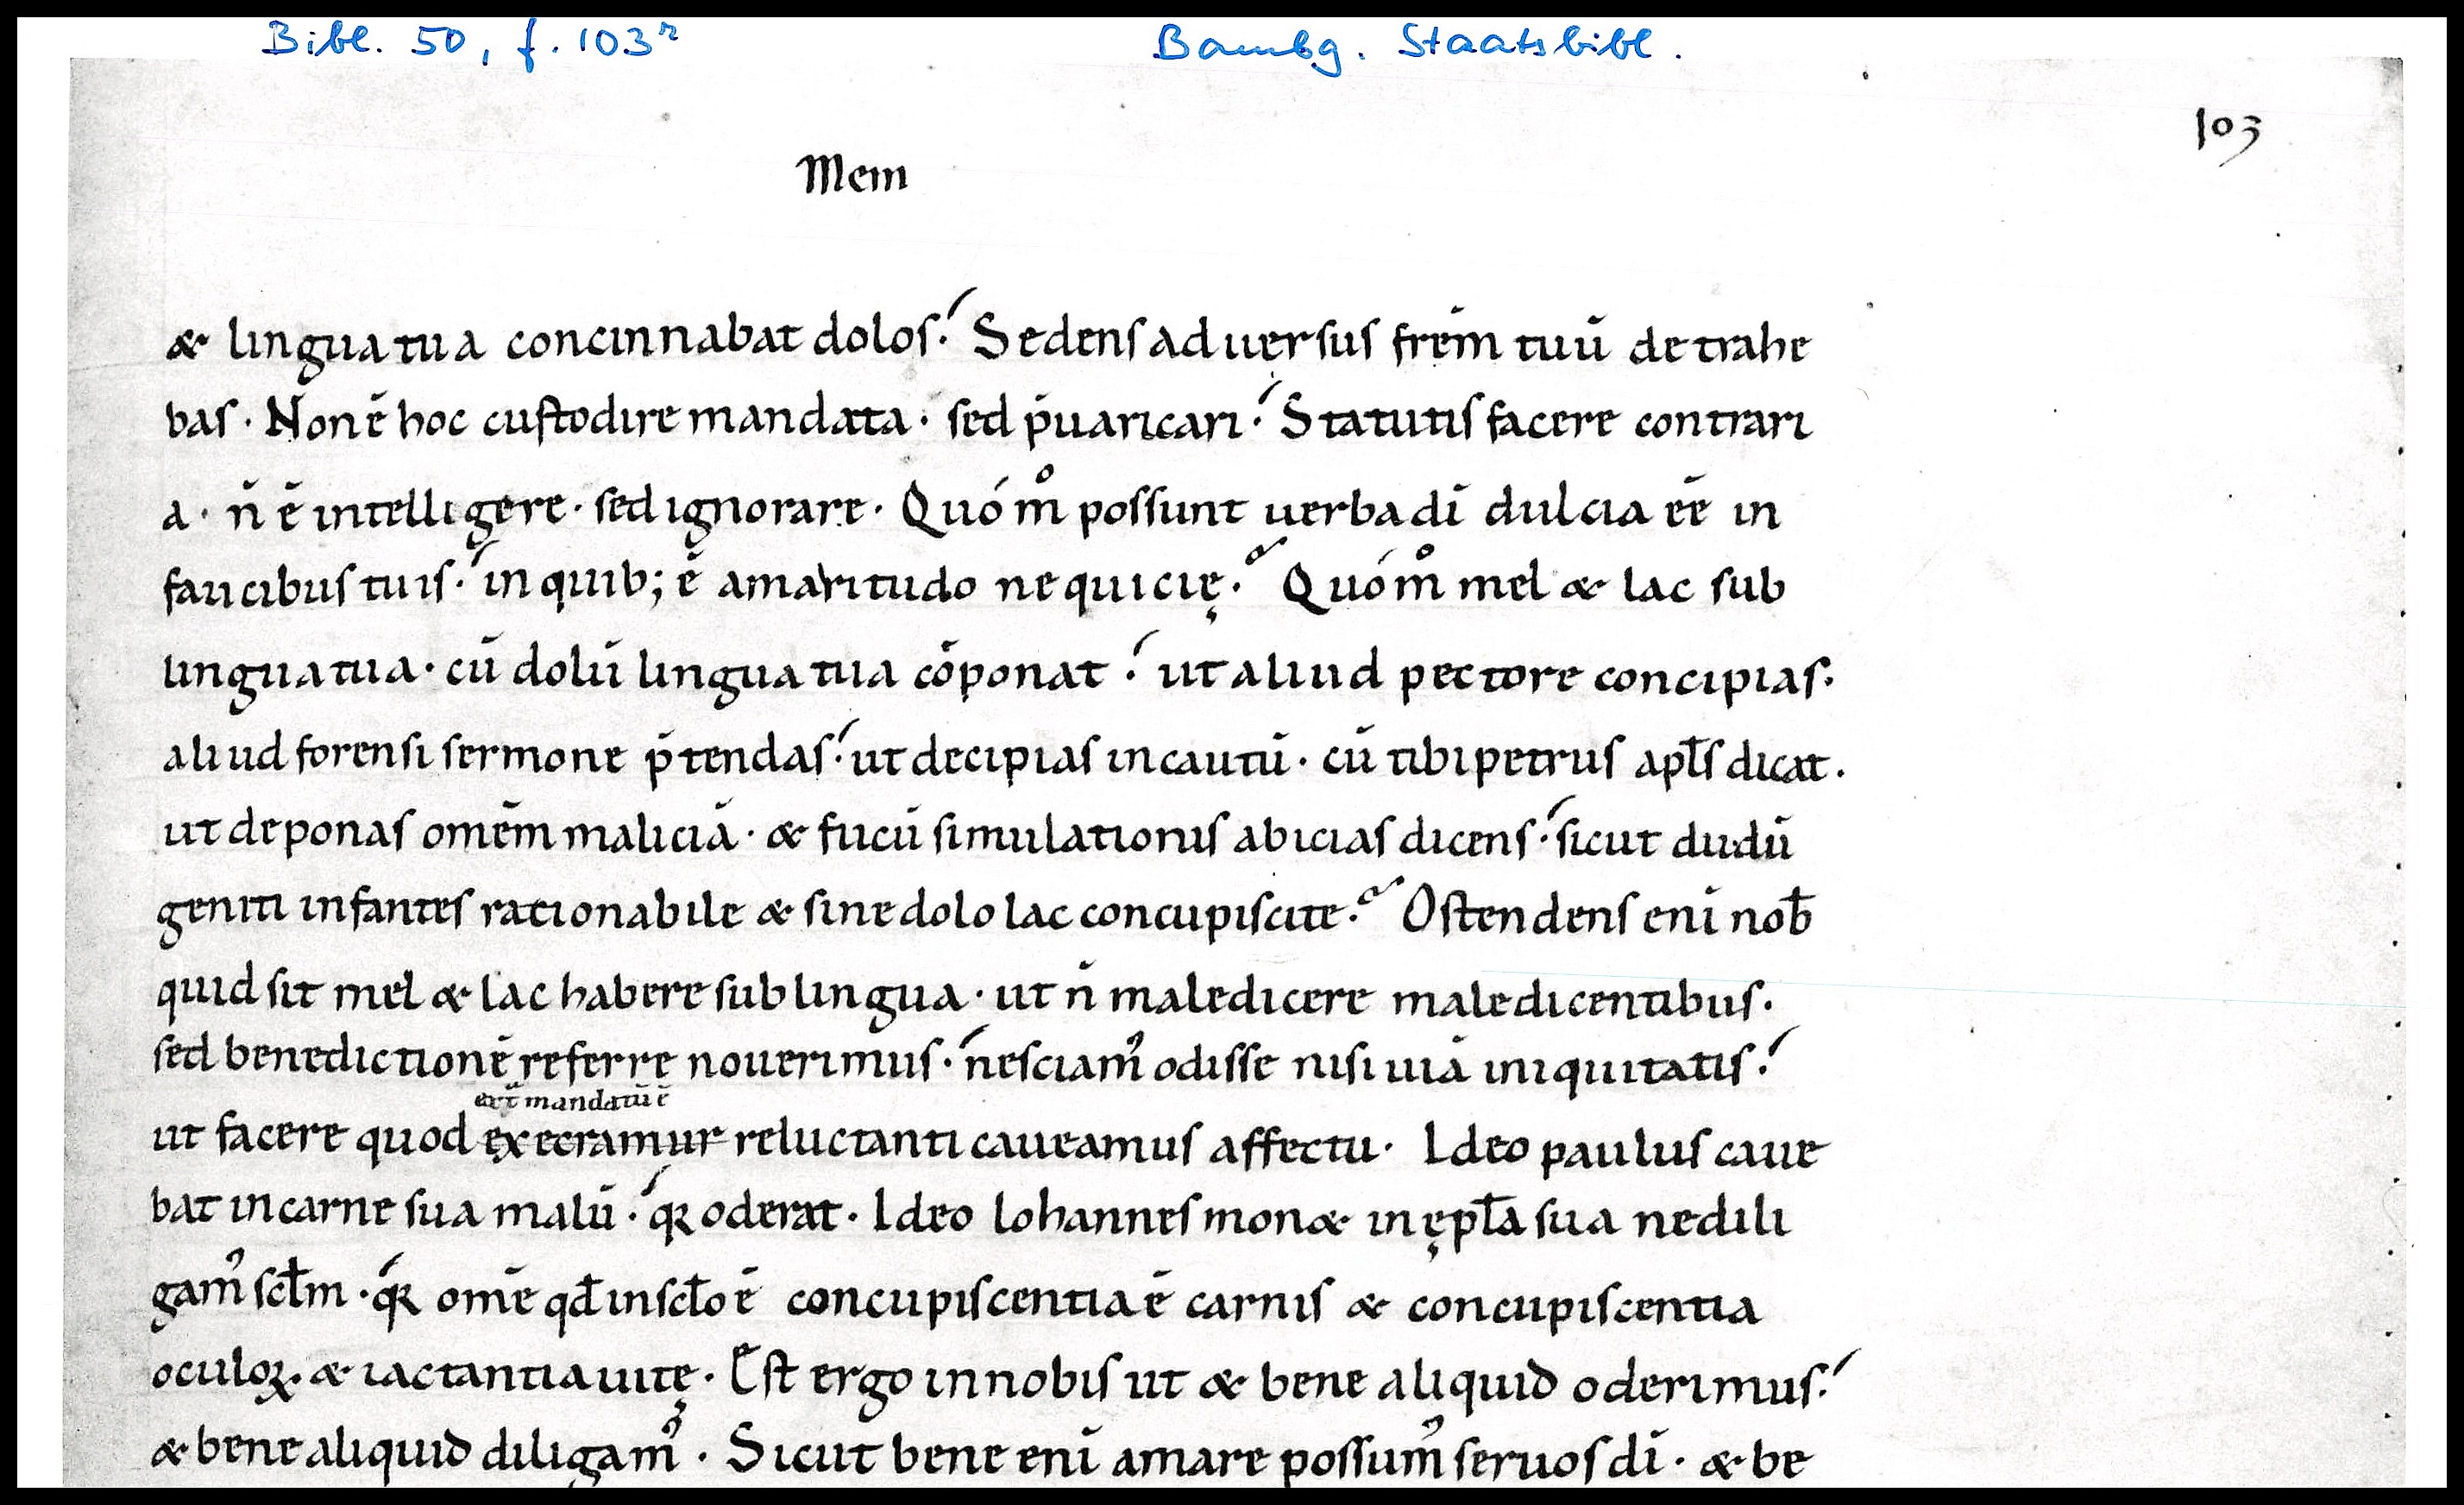 Bibl. 50, f. 103r Bambg. Staatsbibl.
103
Mem
& lingua tua concinnabat dolos. Sedens aduersus frēm tuū detrahe
bas · Non ē hoc custodire mandata · sed p̄uaricari. Statutis facere contrari
a · n̄ ē intelligere · sed ignorare · Quóm̊ possunt uerba dī dulcia eē in
faucibus tuis · in quib; ē amaritudo nequicię. Quóm̊ mel & lac sub
lingua tua · cū dolū lingua tua cōponat. ut aliud pectore concipias·
aliud forensi sermone p̄tendas · ut decipias incautū · cū tibi petrus apl̄s dicat.
ut deponas omēm maliciā · & fucū simulationis abicias dicens · sicut dudū
geniti infantes rationabile & sine dolo lac concupiscite. Ostendens enī nob̄
quid sit mel & lac habere sub lingua · ut n̄ maledicere maledicentibus.
sed benedictionē referre nouerimus · nesciam᾿ odisse nisi uiā iniquitatis.
mandatū ē
ut facere quod execramur reluctanti caueamus affectu · Ideo paulus caue
bat in carne sua malū · qꝛ oderat · Ideo Iohannes mon& in ępl̄a sua ne dili
gam᾿ scl̄m · qꝛ omē qd̄ in scl̄o ē concupiscentia ē carnis & concupiscentia
oculoꝝ · & iactantia uitę · Est ergo in nobis ut & bene aliquid oderimus.
& bene aliquid diligam᾿ · Sicut bene enī amare possum᾿ seruos dī · & be